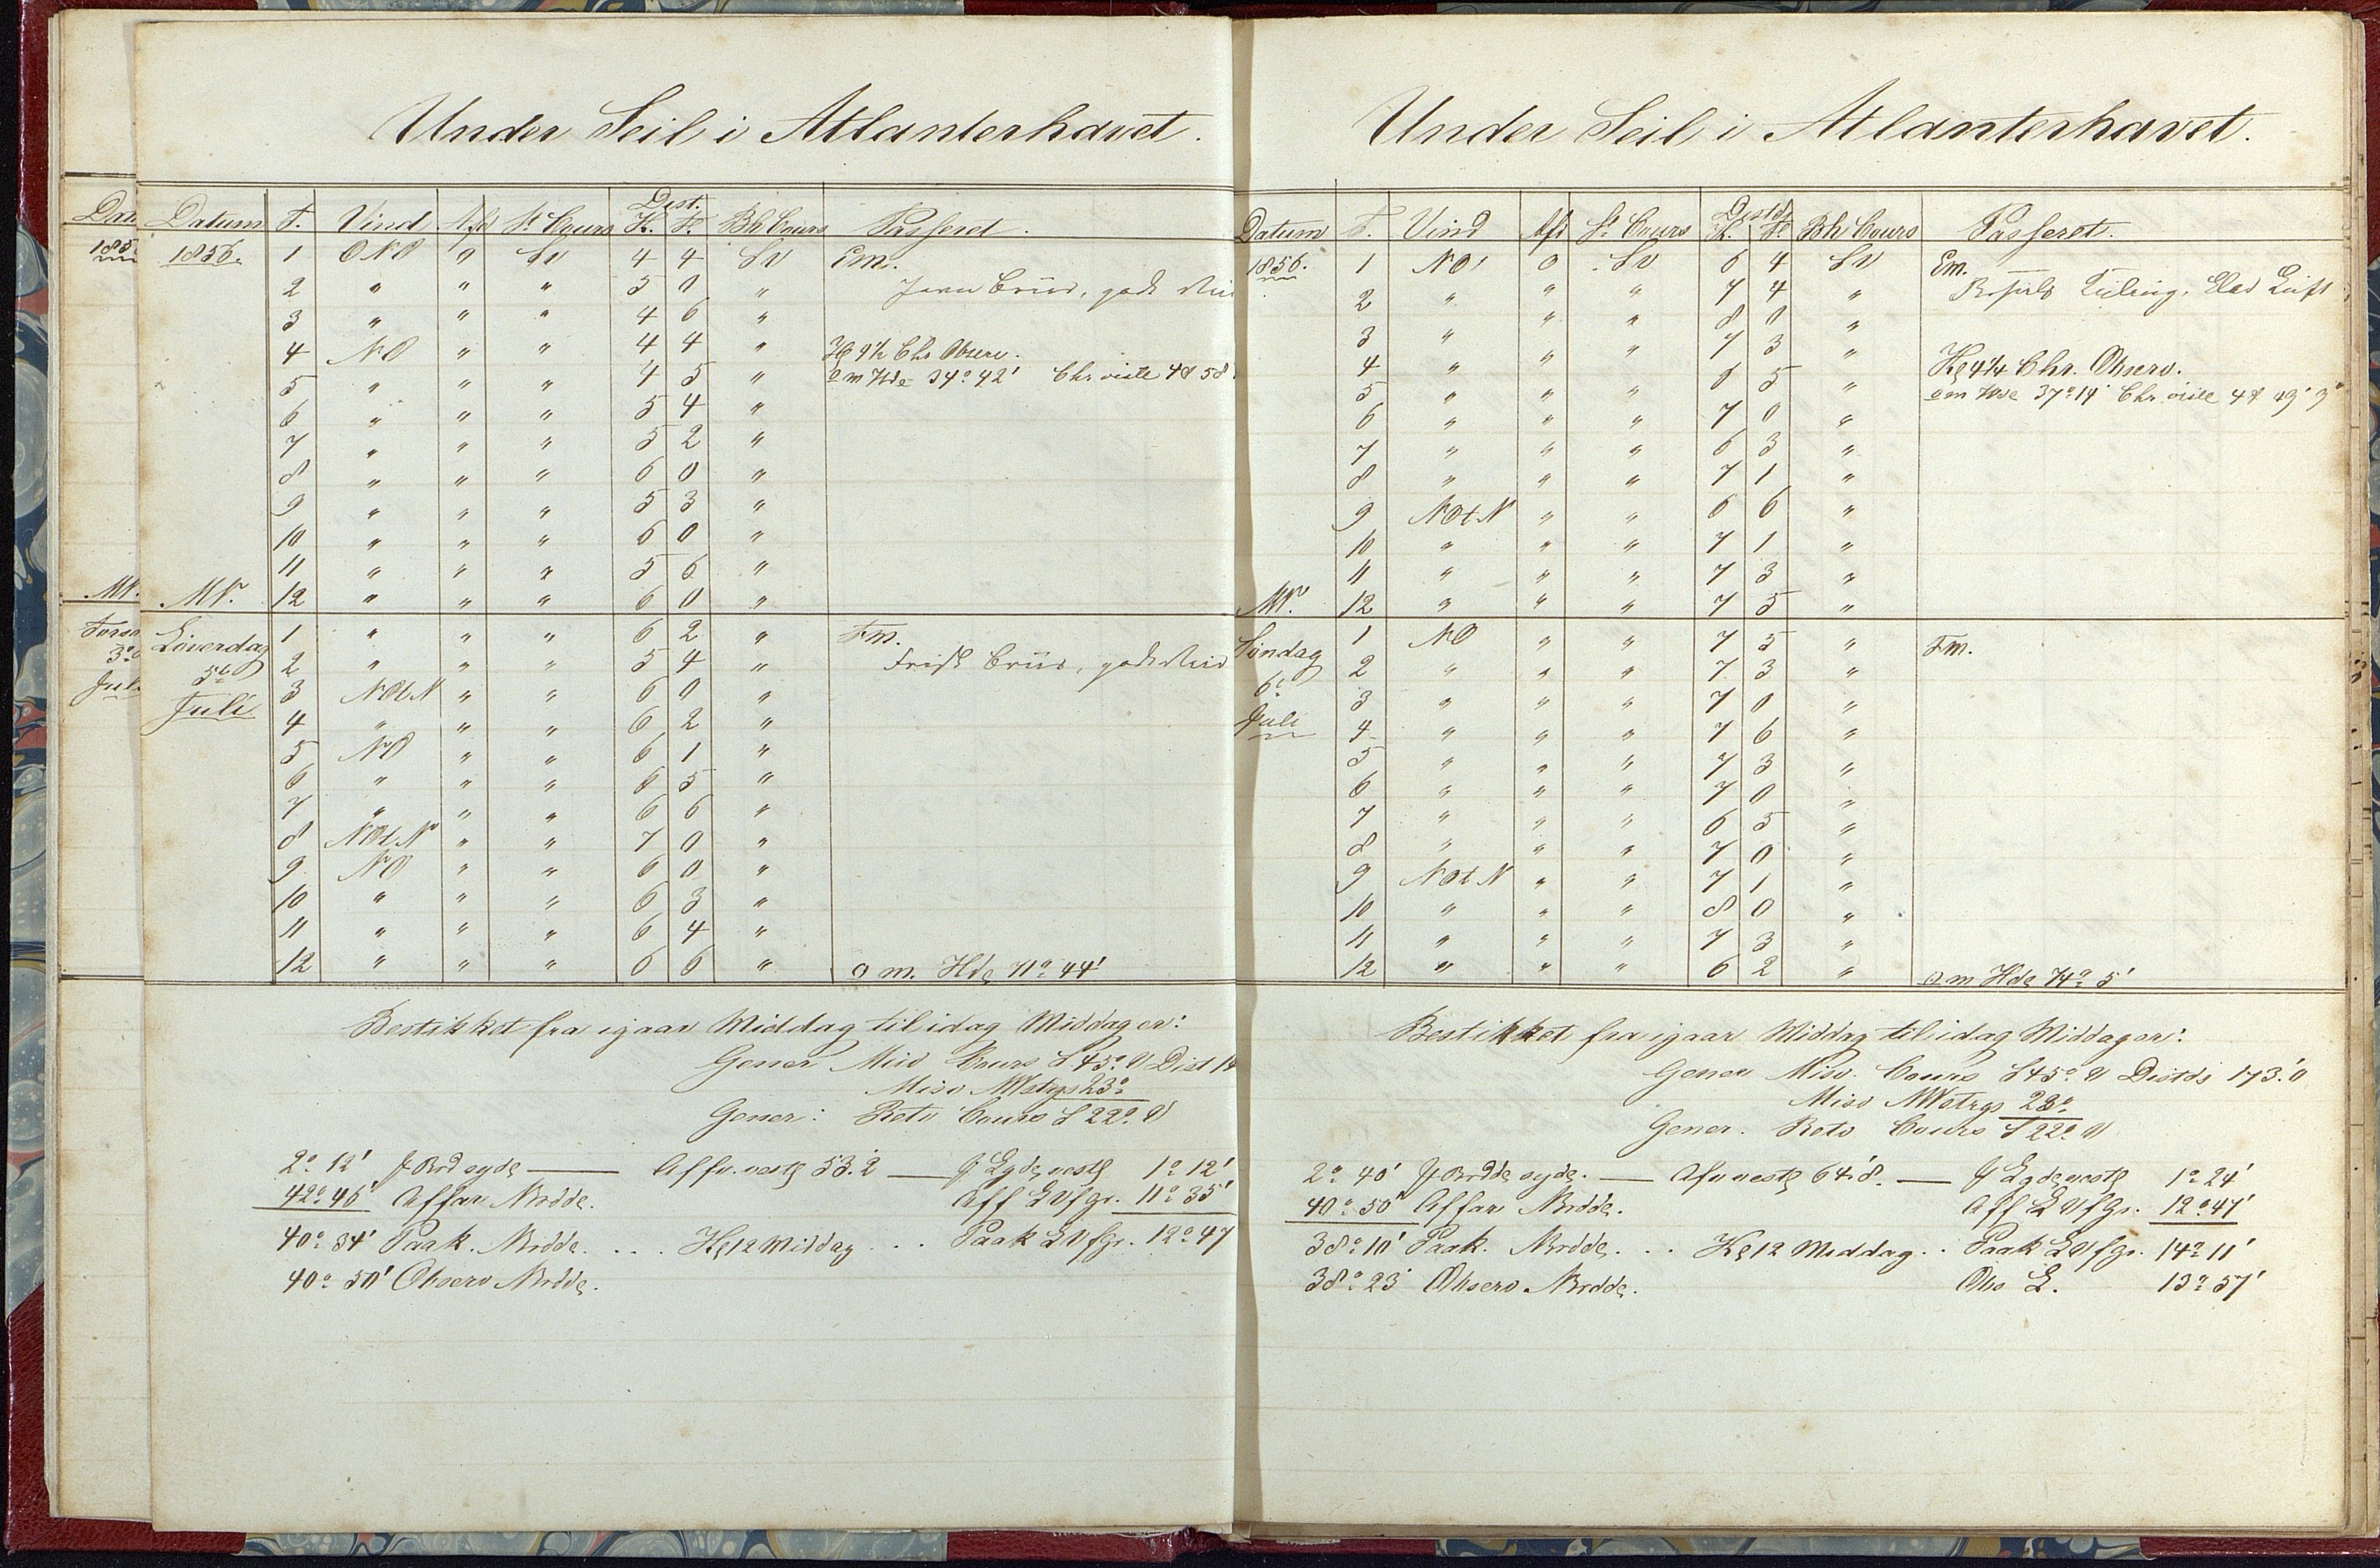 Under Seil i Atlanterhavet.
Dat
185
MN.
Torsd
3d
Juli
Datum T. Vind Afd St Cours Dist. K. F. Bh Cours Passeret.
1856. 1 ONO 0 SV 4 4 SV Em.
2 " " " 5 0 " Jevn Briis, godt Veir
3 " " " 4 6 "
4 NO " " 4 4 " Chr Observ.
5 " " " 4 5 " o m Hde 34° 42' Chr viste 48 58
6 " " " 5 4 "
7 " " " 5 2 "
8 " " " 6 0 "
9 " " " 5 3 "
10 " " " 6 0 "
11 " " " 5 6 "
MN. 12 " " " 6 0 "
Löverdag 1 " " " 6 2 " Fm.
5te 2 " " " 5 4 " Frisk Briis, godt Veir
Juli 3 NOtN " " 6 0 "
4 " " " 6 2 "
5 NO " " 6 1 "
6 " " " 6 5 "
7 " " " 6 6 "
8 NOtN " " 7 0 "
9 NO " " 6 0 "
10 " " " 6 3 "
11 " " " 6 4 "
12 " " " 6 6 " o m. Hde 71° 44'
Bestikket fra igaar Middag til idag Middag er:
Gener Misv Cours S 45° V Dist 14
Misv NVstrgs 23°
Gener: Retv Cours S 22° V
2° 12' f Brd syde — Affv. veste 53.2 — f Lgde veste 1° 12'
42° 46' Affar Nrdde. Aff L Vfgr. 11° 35'
40° 34' Paak. Nrdde . . . Kl 12 Middag . . . Paak L Vfgr. 12° 47
40° 50' Observ Nrdde.
Under Seil i Atlanterhavet.
Datum T. Vind Afd St Cours Distds K. F. Bh Cours Passeret.
1856. 1 NO 0 SV 6 4 SV Em.
2 " " " 7 4 " Kuling, Luft
3 " " " 8 0 "
4 " " " 7 3 " Kl 4¼ Chr. Observ.
5 " " " 8 5 " o m Hde 37° 14' Chr viste 47 49' 9"
6 " " " 7 0 "
7 " " " 6 3 "
8 " " " 7 1 "
9 NOtN " " 6 6 "
10 " " " 7 1 "
11 " " " 7 3 "
MN. 12 " " " 7 5 "
Söndag 1 NO " " 7 5 " Fm.
6te 2 " " " 7 3 "
Juli 3 " " " 7 0 "
4 " " " 7 6 "
5 " " " 7 3 "
6 " " " 7 0 "
7 " " " 6 5 "
8 " " " 7 0 "
9 NOtN " " 7 1 "
10 " " " 8 0 "
11 " " " 7 3 "
12 " " " 6 2 " o m Hde 74° 5'
Bestikket fra igaar Middag til idag Middag er:
Gener Misv. Cours S 45° V Distds 173.'0
Misv NVstrgs 23°
Gener. Retv Cours S 22° V
2° 40' f Brdde syde. — Afv veste 64.'8. — f Lgde veste 1° 24'
40° 50' Affar Nrdde. Aff L Vfgr. 12° 47'
38° 10' Paak. Nrdde. . . Kl 12 Middag . . Paak L Vfgr. 14° 11'
38° 23' Observ Nrdde. Obs L. 13° 57'